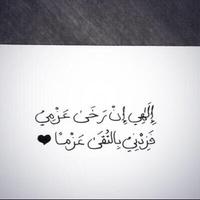 إِلَهِي إِنْ رَخَى عَزْمِي
فَزِدْنِي بِالتُّقَى عَزْمًا ❤